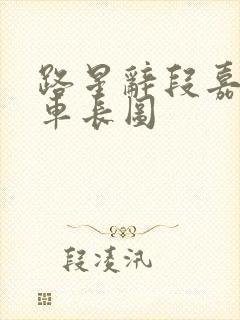 路星辭段嘉
車長圖
段凌汛